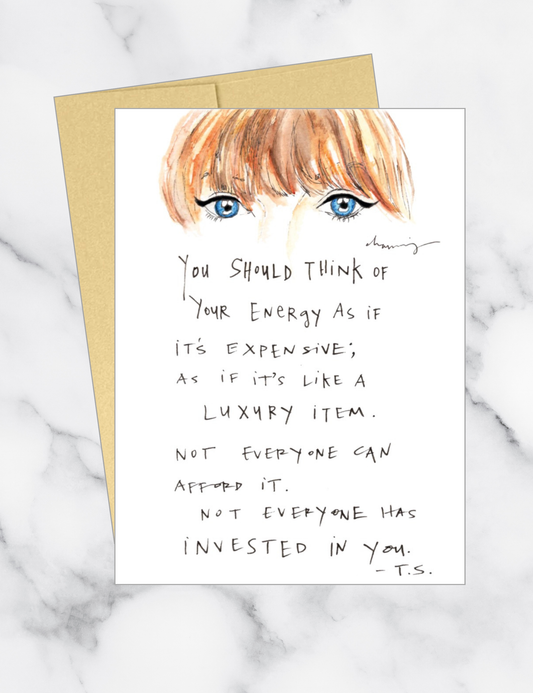 You SHOULD THINK OF
YOUR ENERGY AS IF
IT'S EXPENSIVE;
AS IF IT'S LIKE A
LUXURY ITEM.
NOT EVERYONE CAN
AFFORD IT.
NOT EVERYONE HAS
INVESTED IN YOU.
- T.S.